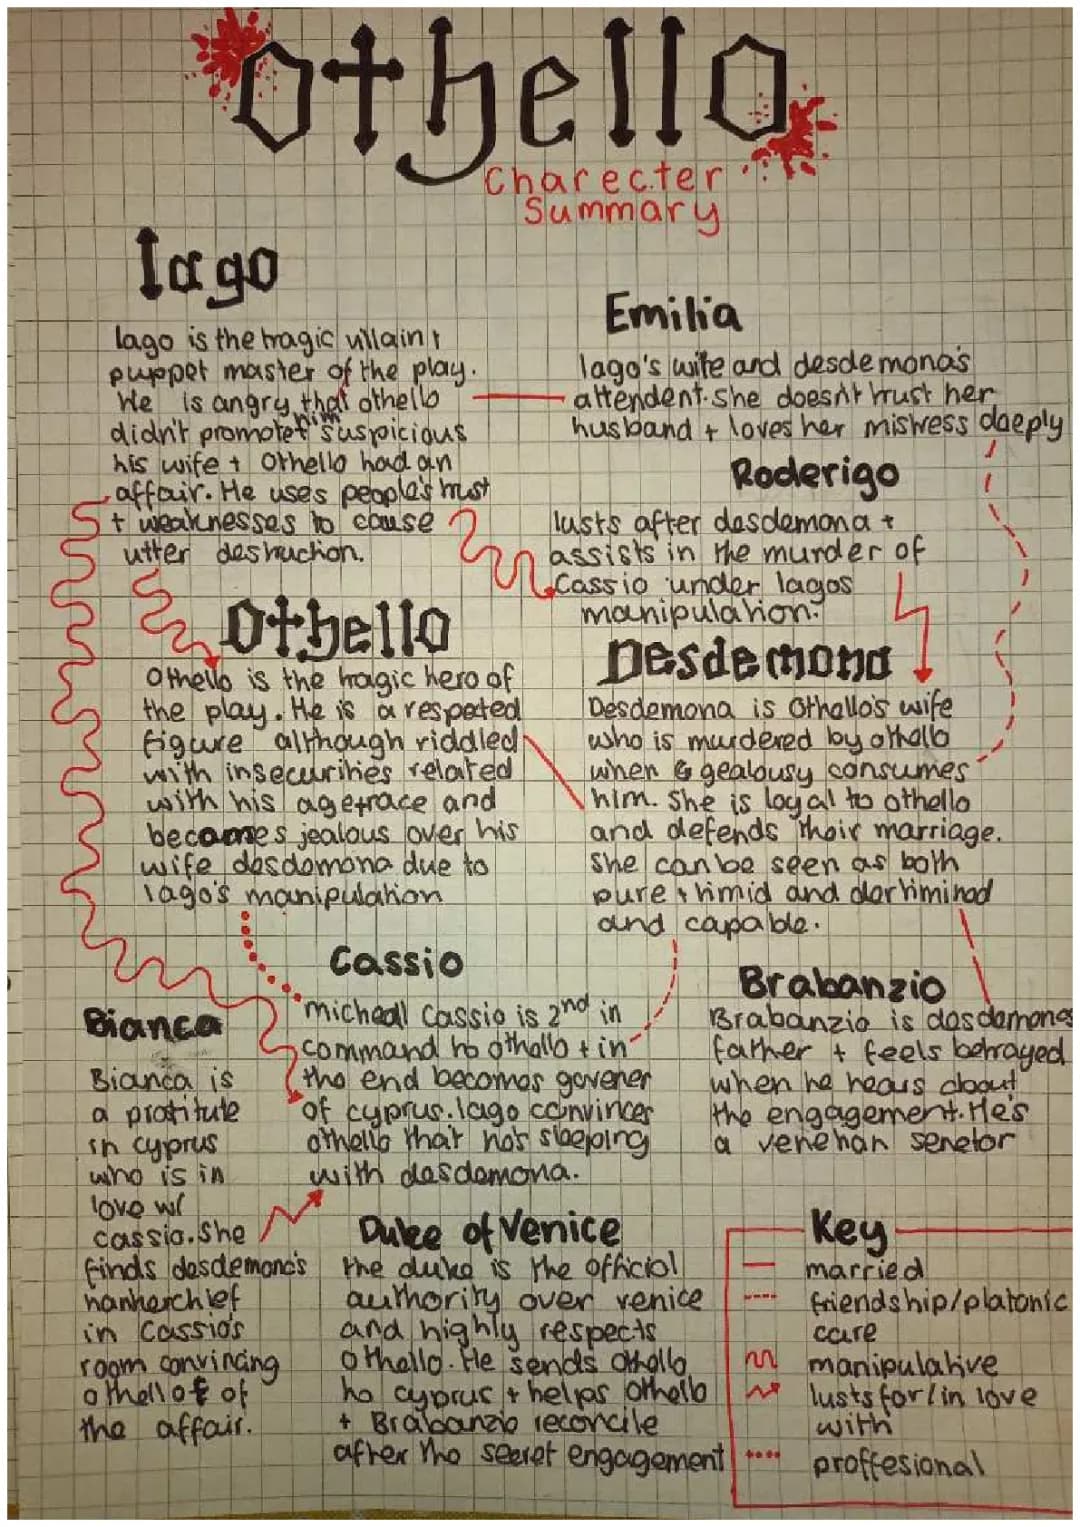 Othello
Charecter
Summary
Iago
Iago is the tragic villain +
puppet master of the play.
He is angry that othello
didn't promote him + suspicious
his wife + Othello had an
affair. He uses people's trust
+ weaknesses to cause
utter destruction.
Emilia
Iago's wife and desdemona's
attendent. She doesn't trust her
husband + loves her mistress daeply
Roderigo
lusts after desdemona +
assists in the murder of
Cassio under Iagos
manipulation.
Othello
Othello is the tragic hero of
the play. He is a respeted
figure although riddled
with insecurities related
with his age + race and
becomes jealous over his
wife desdemona due to
Iago's manipulation
Desdemona
Desdemona is Othello's wife
who is murdered by othello
when gealousy consumes
him. She is loyal to othello
and defends their marriage.
She can be seen as both
pure + timid and dertimined
and capable.
Cassio
micheall Cassio is 2nd in
command to othello + in
the end becomes govener
of cyprus. Iago convinces
othello that he's sleeping
with desdemona.
Brabanzio
Brabanzio is desdemonas
father + feels betrayed
when he hears about
the engagement. He's
a venetian senetor
Bianca
Bianca is
a protitute
in cyprus
who is in
love w/
cassio. She
finds desdemona's
hankerchief
in Cassio's
room convincing
othello of
the affair.
Duke of Venice
the duke is the official
authority over venice
and highly respects
Othello. He sends Othello
to cyprus + helps Othello
+ Brabanzio reconcile
after the secret engagement
Key
married
friendship/platonic
care
manipulative
lusts for/in love
with
proffesional